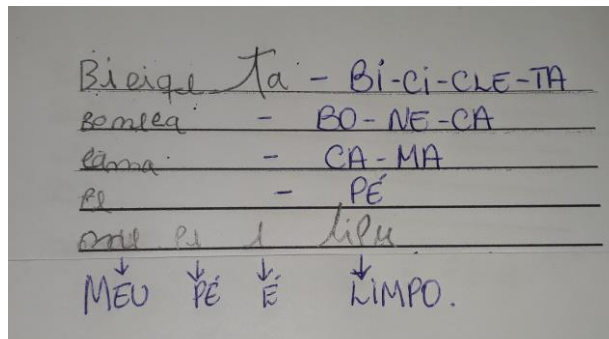 Bicique ta - Bi-Ci-CLE-TA
Boneca - BO-NE-CA
cama - CA-MA
pe - PÉ
meu pe e lipu
MEU PÉ É LIMPO.